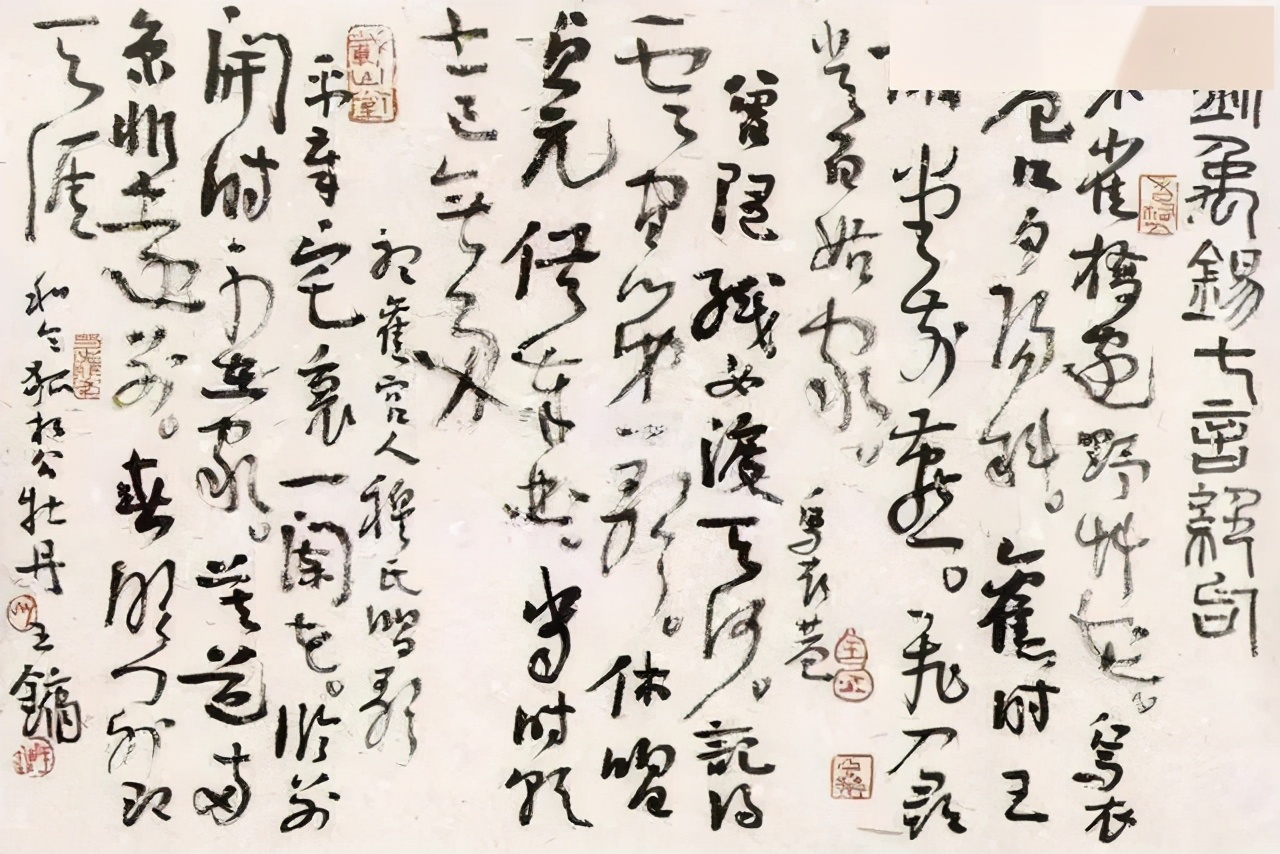 劉禹錫七言詩句
朱雀橋邊野艸花。烏衣
巷口夕陽斜。舊時王
謝堂前燕。飛入尋
常百姓家。烏衣巷
曾隨織女渡天河。記得
雲間第一歌。休唱
貞元供奉曲。當時朝
士已無多
聽舊宮人穆氏唱歌
平章宅裏一闌花。臨到
開時不在家。莫道兩
京非遠別。春明門外即
天涯
和令狐相公牡丹 王鏞